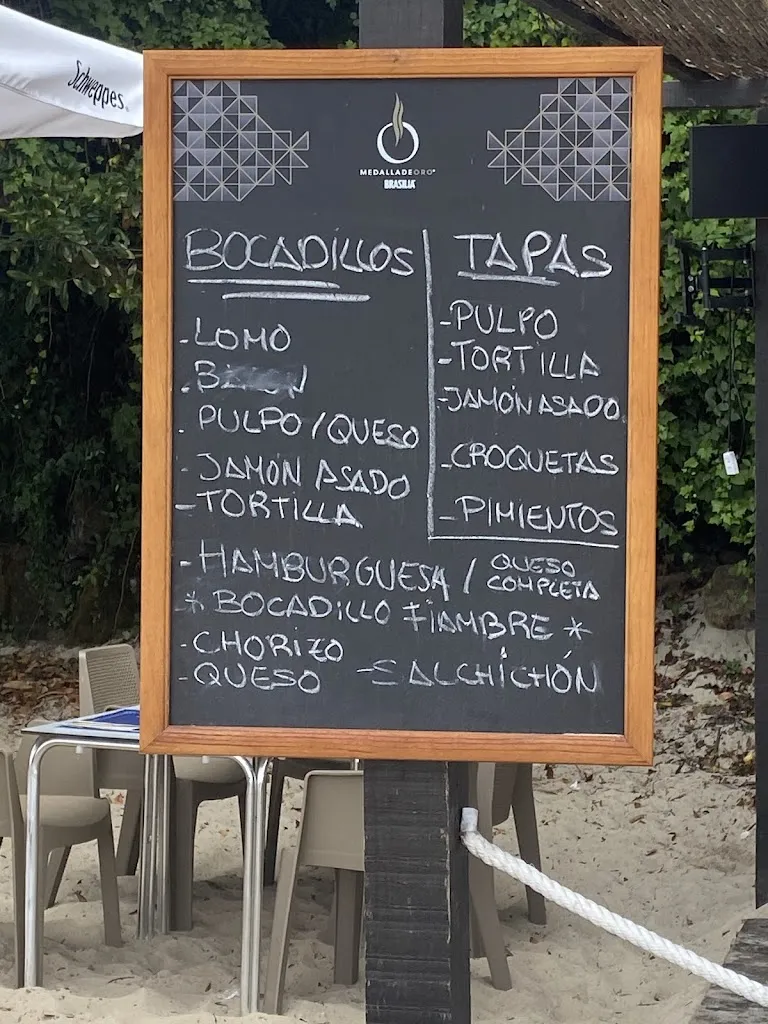 Schweppes
MEDALLADEORO
BRASILIA
BOCADILLOS
- LOMO
- PULPO / QUESO
- JAMÓN ASADO
- TORTILLA
TAPAS
- PULPO
- TORTILLA
- JAMÓN ASADO
- CROQUETAS
- PIMIENTOS
- HAMBURGUESA / QUESO
COMPLETA
* BOCADILLO FIAMBRE *
- CHORIZO
- QUESO - SALCHICHÓN